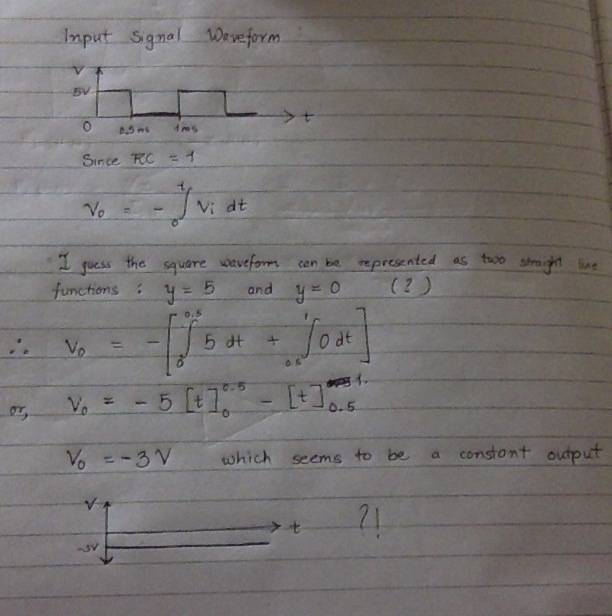 Input Signal Waveform
V
5V
0 0.5ms 1ms t
Since RC = 1
Vo = - ∫₀ᵗ Vi dt
I guess the square waveform can be represented as two straight line
functions : y = 5 and y = 0 (?)
∴ Vo = - [ ∫₀^0.5 5 dt + ∫_0.5^1 0 dt ]
or, Vo = - 5 [t]₀^0.5 - [t]_0.5^1.
Vo = -3 V which seems to be a constant output
V
t ?!
-3V